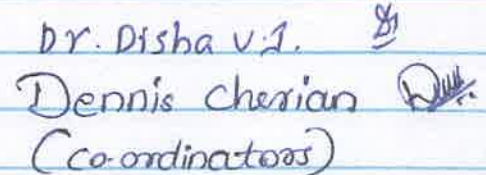 Dr. Disha V.J.
Dennis Cherian
(co-ordinators)